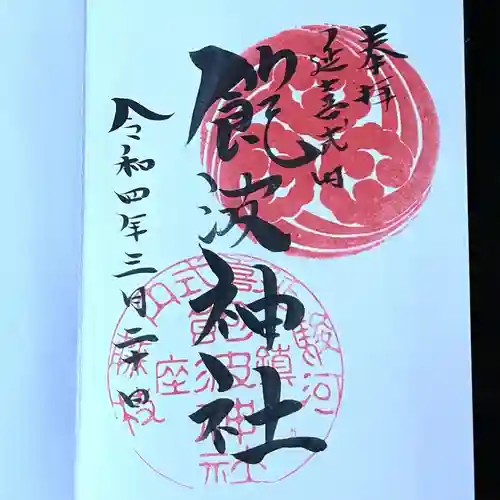 奉拝
延喜式内
飽波神社
令和四年三月二十日
駿河
鎮座
藤枝
飽波神社